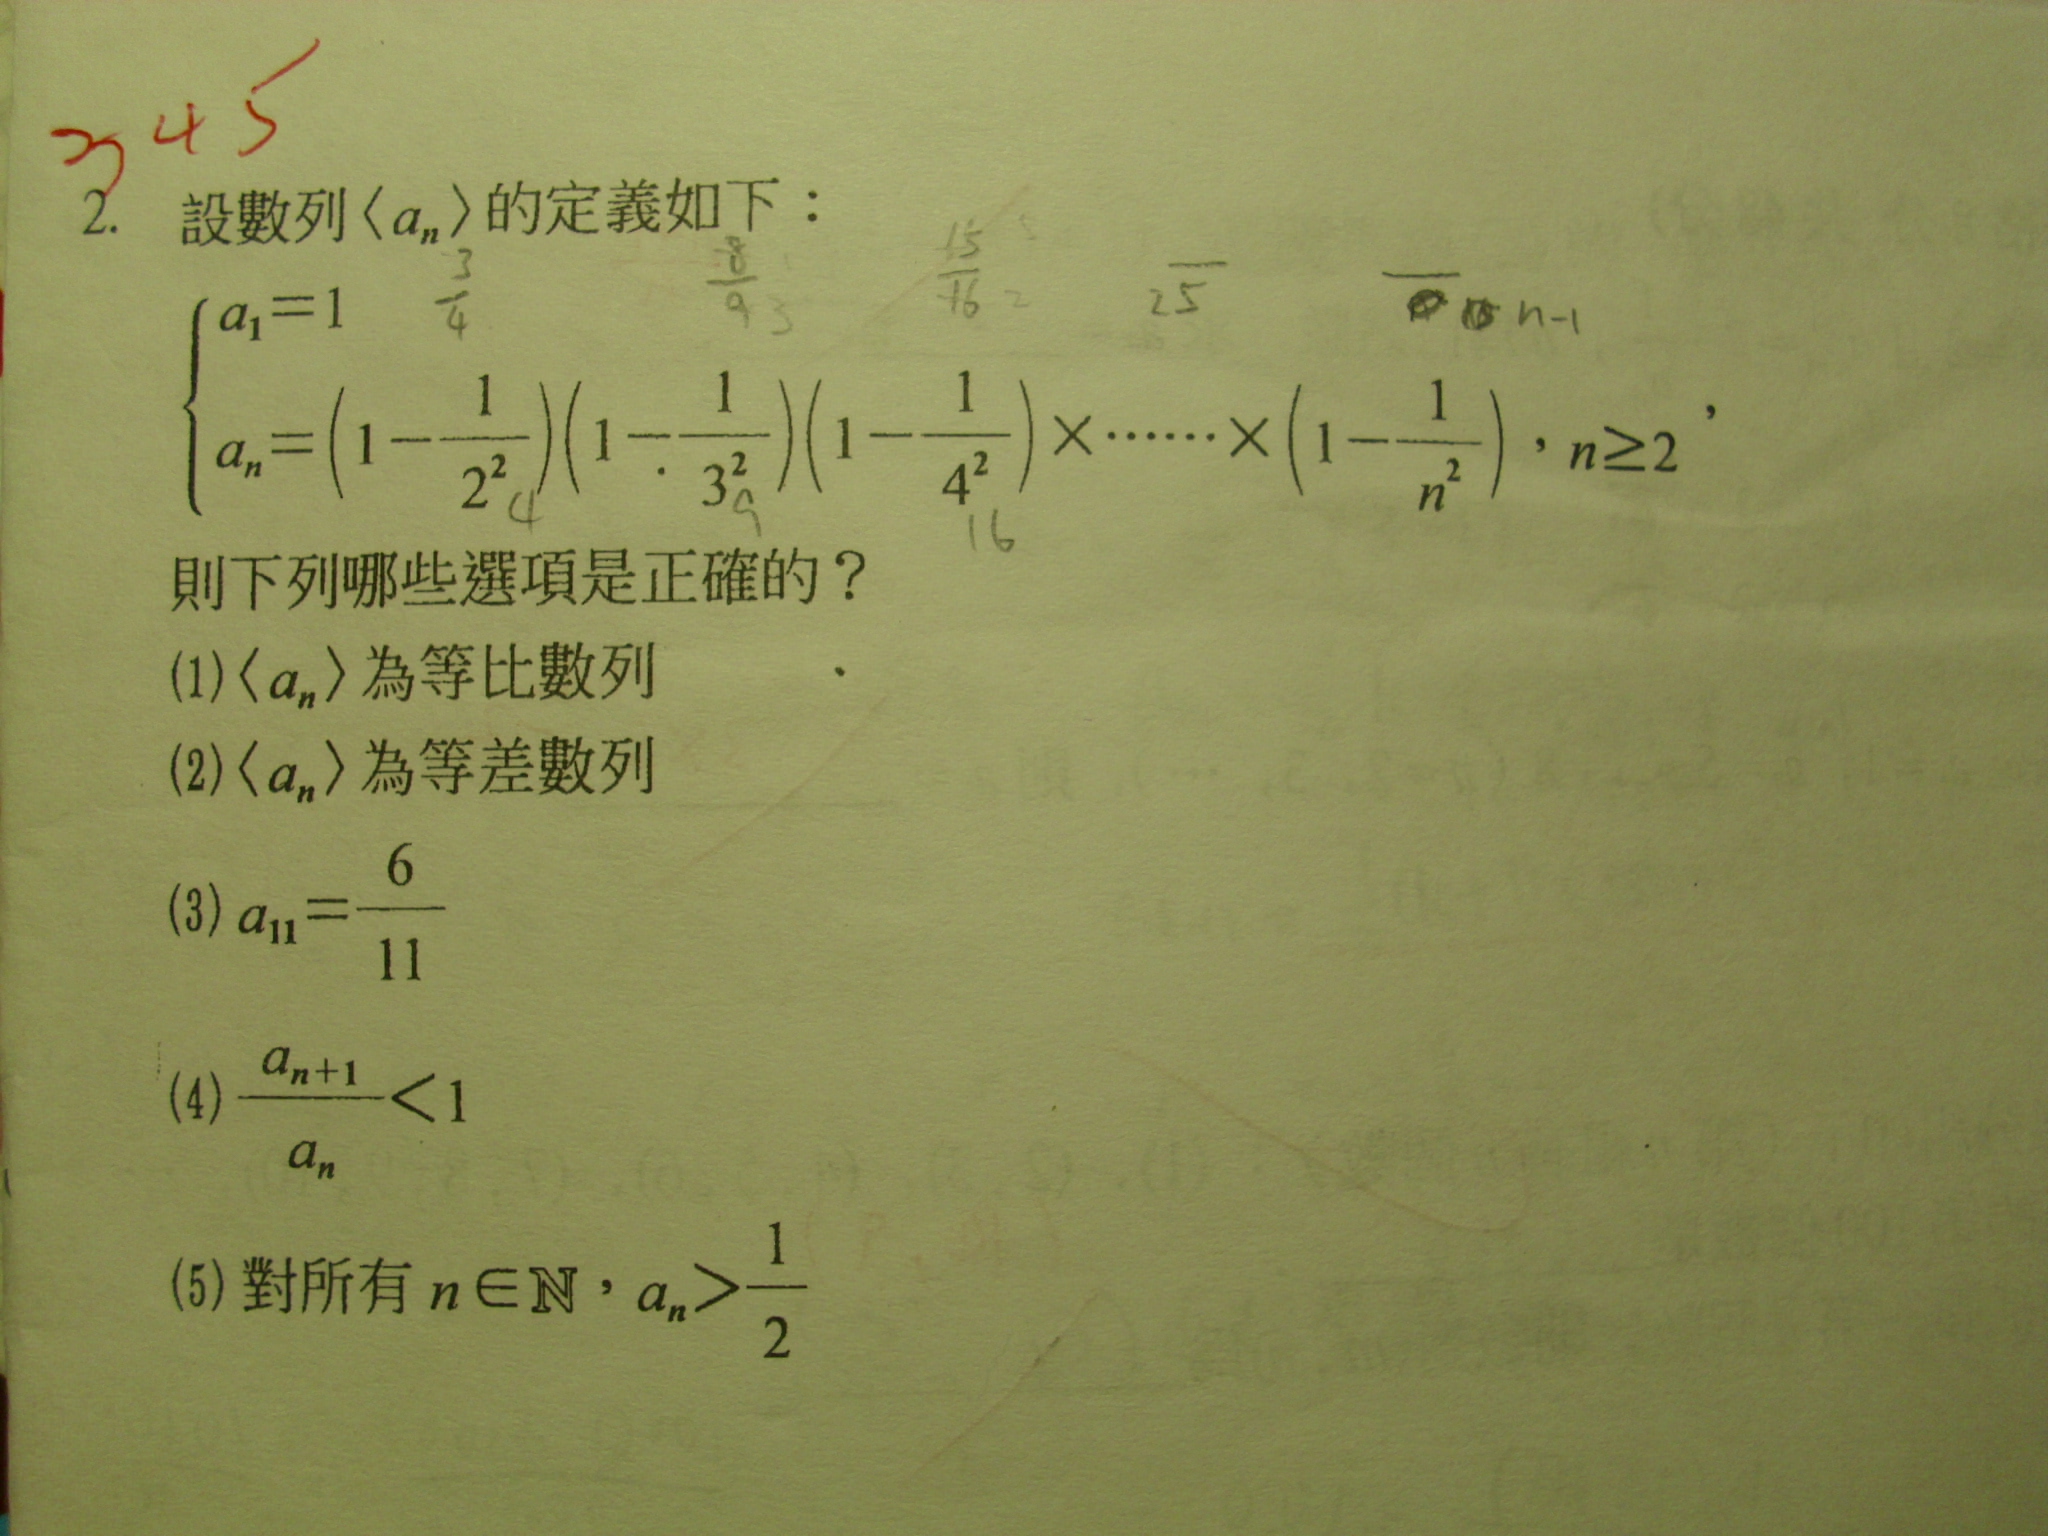 345
2. 設數列〈aₙ〉的定義如下：
3/4 8/9 3 15/16 2 25 n-1
a₁＝1
aₙ＝(1－1/2²)(1－1/3²)(1－1/4²)×……×(1－1/n²)，n≥2，
4 9 16
則下列哪些選項是正確的？
(1)〈aₙ〉為等比數列
(2)〈aₙ〉為等差數列
(3) a₁₁＝6/11
(4) aₙ₊₁/aₙ＜1
(5) 對所有 n∈ℕ，aₙ＞1/2